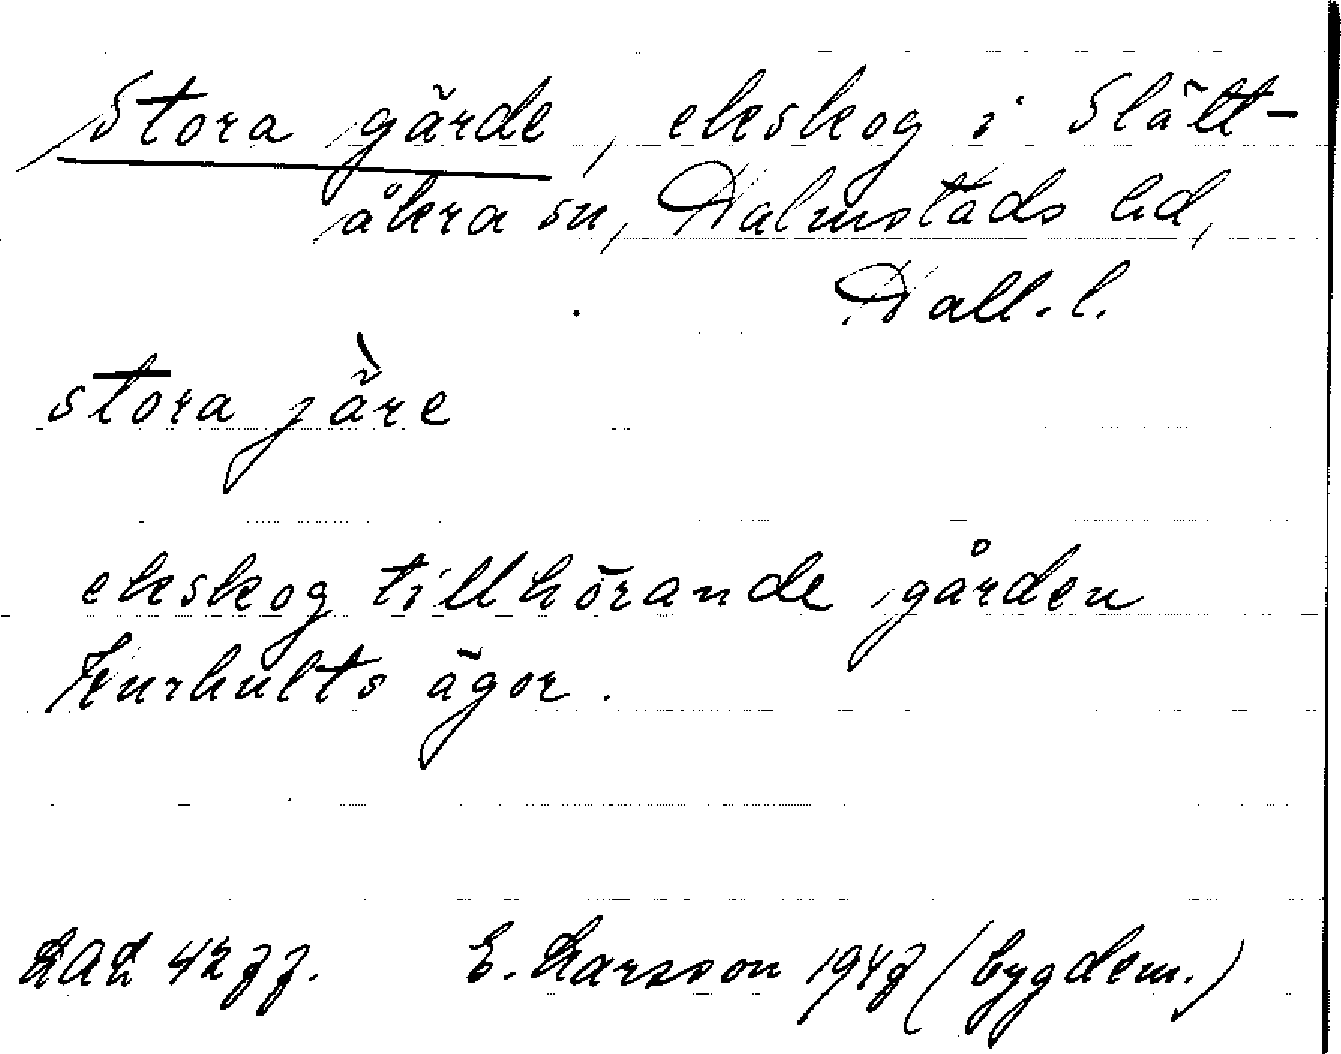 Stora gärde, ekskog i Slätt-
åkra sn, Halmstads hd,
Hall. l.
stora jä̀re
ekskog tillhörande gården
Kurhults ägor.
LAL 4277. E. Larsson 1947 (bygdem.)